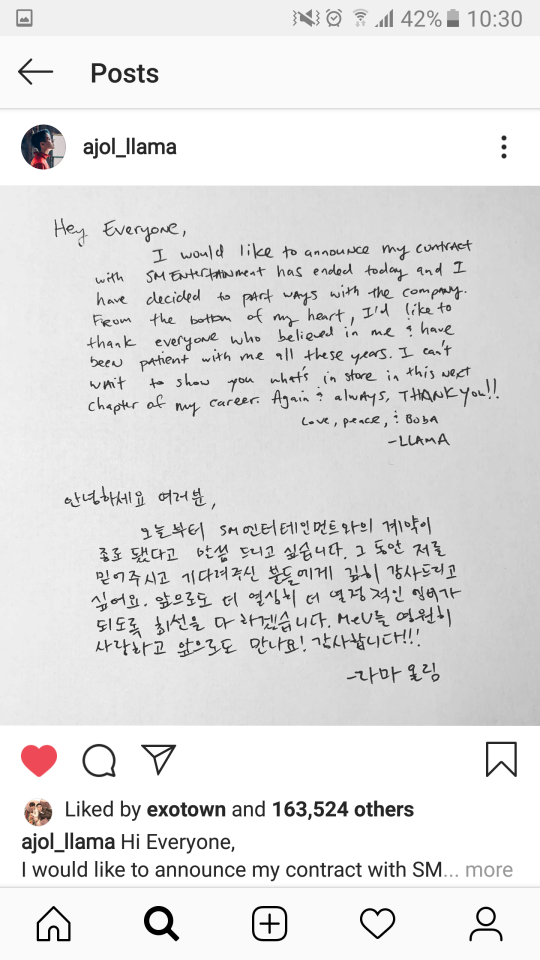 42% 10:30
Posts
ajol_llama
Hey Everyone,
I would like to announce my contract
with SM Entertainment has ended today and I
have decided to part ways with the company.
From the bottom of my heart, I'd like to
thank everyone who believed in me & have
been patient with me all these years. I can't
wait to show you what's in store in this next
chapter of my career. Again & always, THANK You!!
Love, peace, & Boba
-LLAMA
안녕하세요 여러분,
오늘부터 SM엔터테인먼트와의 계약이
종료 됐다고 말씀 드리고 싶습니다. 그 동안 저를
믿어주시고 기다려주신 분들에게 깊히 감사드리고
싶어요. 앞으로도 더 열심히 더 열정적인 엠버가
되도록 최선을 다 하겠습니다. MeU들 영원히
사랑하고 앞으로도 만나요! 감사합니다!!!
-라마 올림
Liked by exotown and 163,524 others
ajol_llama Hi Everyone,
I would like to announce my contract with SM... more